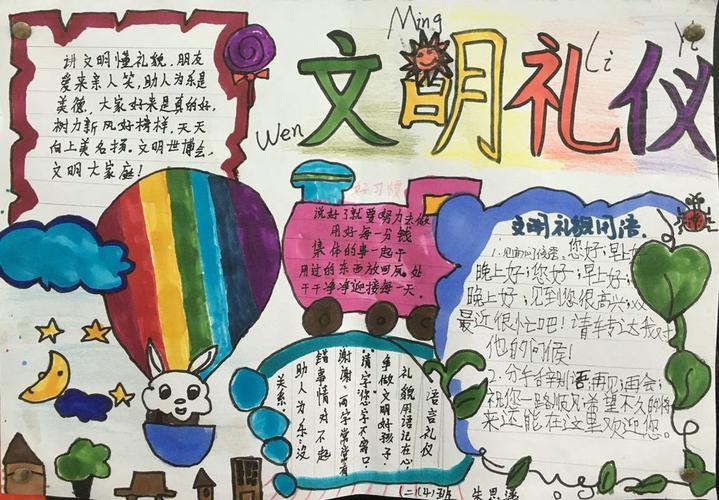 Ming
Li
Yi
Wen
文明礼仪
讲文明懂礼貌，朋友
爱来亲人笑，助人为乐是
美德，大家好来是真的好，
树力新风好榜样，天天
向上美名扬。文明世博会，
文明大家庭！
好习惯
说好了就要努力去做
用好每一分钱
集体的事一起干
用过的东西放回原处
干干净净迎接每一天。
文明礼貌用语.
1.见面问候语。您好；早上好；
晚上好；您好；早上好；
晚上好；见到您很高兴；
最近很忙吧！请转达我对
他的问候！
2.分手告别语 再见；再会；
祝你一路顺风；希望不久的将
来还能在这里欢迎您。
语言礼仪
礼貌用语记在心，
争做文明好孩子。
请字您字不离口，
谢谢二两字常常有
错事情对不起
助人为乐没
关系.
二(4)班